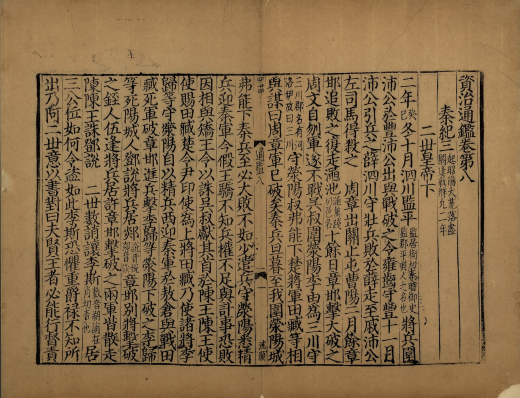 資治通鑑卷第八
秦紀三 起昭陽大荒落盡閼逢敦牂凡二年
二世皇帝下
二年癸巳冬十月泗川監平監居衘切秦置御史監郡平其人之名也將兵圍
沛公於豐沛公出與戰破之令雍齒守豐十一月
沛公引兵之薛泗川守壯兵敗於薛走至戚沛公
左司馬得殺之 周章出關止屯曹陽二月餘章
邯追敗之復走澠池十餘日章邯擊大破之
周文自刎軍遂不戰吳叔圍滎陽李由為三川守
三川郡名有河洛伊故曰三川守滎陽叔弗能下楚將軍田臧等相
與謀曰周章軍已破矣秦兵旦暮至我圍滎陽城
通鑑八 一
弗能下秦兵至必大敗不如少遺兵守滎陽悉精
兵迎秦軍今假王驕不知兵權不足與計事恐敗
因相與矯王令以誅吳叔獻其首於陳王陳王使
使賜田臧楚令尹印使為上將田臧乃使諸將李
歸等守滎陽自以精兵西迎秦軍於敖倉與戰田
臧死軍破章邯進兵擊李歸等滎陽下破之李歸
等死陽城人鄧說將兵居郟章邯別將擊破
之銍人伍逢將兵居許章邯擊破之兩軍皆散走
陳陳王誅鄧說 二世數誚讓李斯居
三公位如何令盜如此李斯恐懼重爵祿不知所
出乃阿二世意以書對曰夫賢王者必能行督責